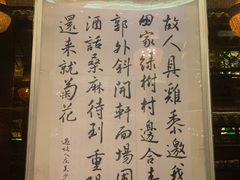 故人具雞黍邀我
田家绿樹村邊合青
郭外斜開軒面場圃
酒話桑麻待到重陽
還来就菊花